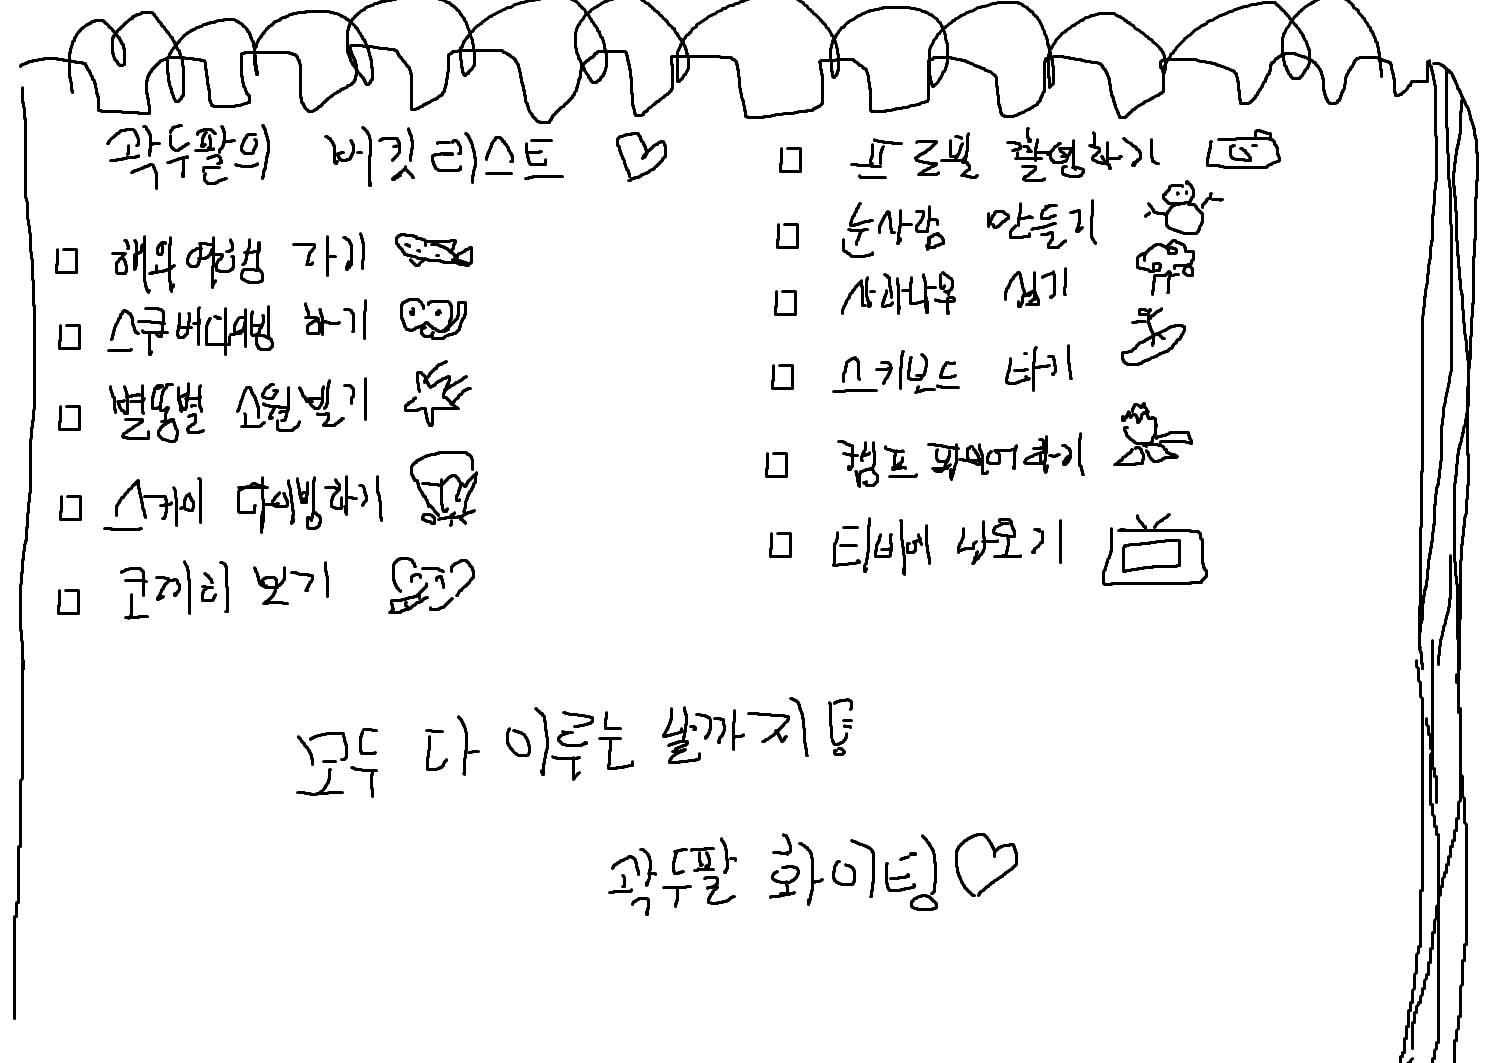 곽두팔의 버킷리스트
해외여행 가기
스쿠버다이빙 하기
별똥별 소원빌기
스카이 다이빙하기
코끼리 보기
프로필 촬영하기
눈사람 만들기
사과나무 심기
스키보드 타기
캠프파이어하기
티비에 나오기
모두 다 이루는 날까지!
곽두팔 화이팅